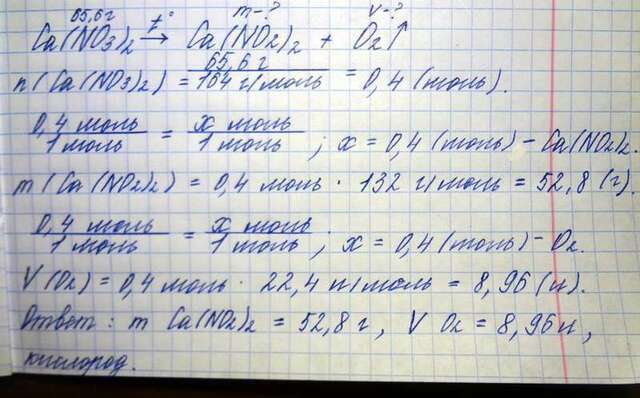 65,6 г m-? V-?
Ca(NO3)2 t°→ Ca(NO2)2 + O2↑
n(Ca(NO3)2) = 65,6 г / 164 г/моль = 0,4 (моль).
0,4 моль / 1 моль = x моль / 1 моль ; x = 0,4 (моль) - Ca(NO2)2.
m(Ca(NO2)2) = 0,4 моль · 132 г/моль = 52,8 (г).
0,4 моль / 1 моль = x моль / 1 моль ; x = 0,4 (моль) - O2.
V(O2) = 0,4 моль · 22,4 л/моль = 8,96 (л).
Ответ: m Ca(NO2)2 = 52,8 г, V O2 = 8,96 л,
кислород.